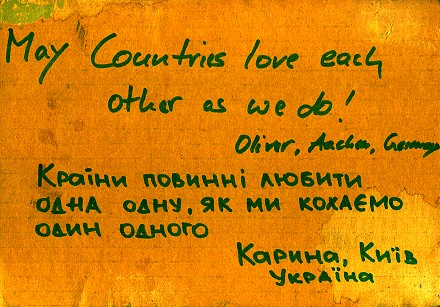 May Countries love each
other as we do!
Oliver, Aachen, Germany
Країни повинні любити
одна одну, як ми кохаємо
один одного
Карина, Київ
Україна